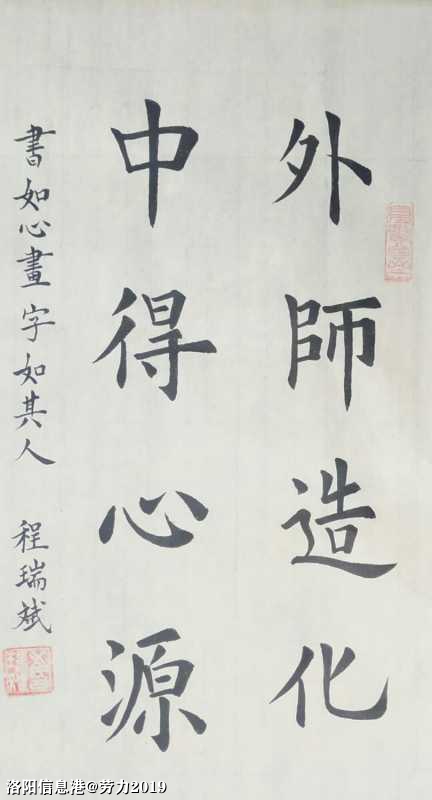 外師造化
中得心源
書如心畫字如其人 程瑞斌
洛阳信息港@劳力2019